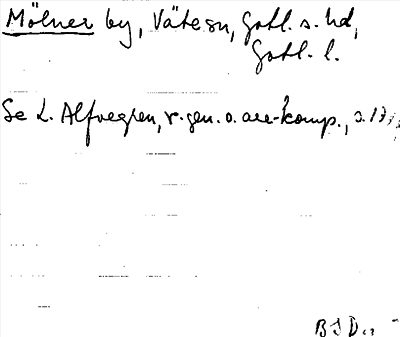 Mölner by, Väte sn, Gotl. s. hd,
Gotl. l.
Se L. Alfvegren, r-gen. o. are-komp., s.